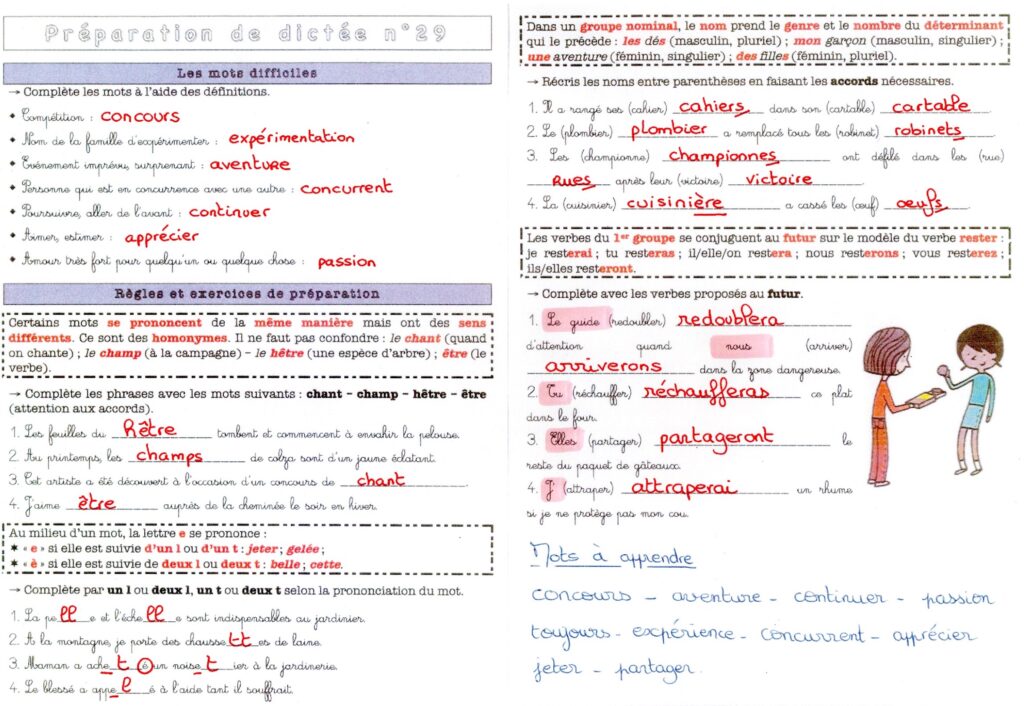 Préparation de dictée n°29
Les mots difficiles
→ Complète les mots à l'aide des définitions.
◆ Compétition : concours
◆ Nom de la famille d'expérimenter : expérimentation
◆ Evénement imprévu, surprenant : aventure
◆ Personne qui est en concurrence avec une autre : concurrent
◆ Poursuivre, aller de l'avant : continuer
◆ Aimer, estimer : apprécier
◆ Amour très fort pour quelqu'un ou quelque chose : passion
Règles et exercices de préparation
Certains mots se prononcent de la même manière mais ont des sens
différents. Ce sont des homonymes. Il ne faut pas confondre : le chant (quand
on chante) ; le champ (à la campagne) – le hêtre (une espèce d'arbre) ; être (le
verbe).
→ Complète les phrases avec les mots suivants : chant – champ – hêtre – être
(attention aux accords).
1. Les feuilles du hêtre tombent et commencent à envahir la pelouse.
2. Au printemps, les champs de colza sont d'un jaune éclatant.
3. Cet artiste a été découvert à l'occasion d'un concours de chant.
4. J'aime être auprès de la cheminée le soir en hiver.
Au milieu d'un mot, la lettre e se prononce :
✶ « e » si elle est suivie d'un l ou d'un t : jeter ; gelée ;
✶ « è » si elle est suivie de deux l ou deux t : belle ; cette.
→ Complète par un l ou deux l, un t ou deux t selon la prononciation du mot.
1. La pelle et l'échelle sont indispensables au jardinier.
2. A la montagne, je porte des chaussettes de laine.
3. Maman a acheté un noisetier à la jardinerie.
4. Le blessé a appelé à l'aide tant il souffrait.
Dans un groupe nominal, le nom prend le genre et le nombre du déterminant
qui le précède : les dés (masculin, pluriel) ; mon garçon (masculin, singulier) ;
une aventure (féminin, singulier) ; des filles (féminin, pluriel).
→ Récris les noms entre parenthèses en faisant les accords nécessaires.
1. Il a rangé ses (cahier) cahiers dans son (cartable) cartable.
2. Le (plombier) plombier a remplacé tous les (robinet) robinets.
3. Les (championne) championnes ont défilé dans les (rue)
rues après leur (victoire) victoire.
4. La (cuisinier) cuisinière a cassé les (œuf) œufs.
Les verbes du 1er groupe se conjuguent au futur sur le modèle du verbe rester :
je resterai ; tu resteras ; il/elle/on restera ; nous resterons ; vous resterez ;
ils/elles resteront.
→ Complète avec les verbes proposés au futur.
1. Le guide (redoubler) redoublera
d'attention quand nous (arriver)
arriverons dans la zone dangereuse.
2. Tu (réchauffer) réchaufferas ce plat
dans le four.
3. Elles (partager) partageront le
reste du paquet de gâteaux.
4. J' (attraper) attraperai un rhume
si je ne protège pas mon cou.
Mots à apprendre
concours – aventure – continuer – passion
toujours – expérience – concurrent – apprécier
jeter – partager.